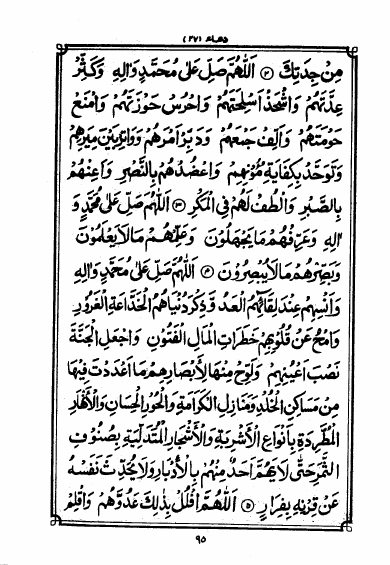 دعاء (٢٧)
مِنْ جِدَتِكَ ② اَللّٰهُمَّ صَلِّ عَلٰى مُحَمَّدٍ وَاٰلِهٖ وَكَثِّرْ
عِدَّتَهُمْ وَاشْحَذْ اَسْلِحَتَهُمْ وَاحْرُسْ حَوْزَتَهُمْ وَامْنَعْ
حَوْمَتَهُمْ وَاَلِّفْ جَمْعَهُمْ وَدَبِّرْ اَمْرَهُمْ وَوَاتِرْ بَيْنَ مِيَرِهِمْ
وَتَوَحَّدْ بِكِفَايَةِ مُؤَنِهِمْ وَاعْضُدْهُمْ بِالنَّصْرِ وَاَعِنْهُمْ
بِالصَّبْرِ وَالْطُفْ لَهُمْ فِي الْمَكْرِ ③ اَللّٰهُمَّ صَلِّ عَلٰى مُحَمَّدٍ وَ
اٰلِهٖ وَعَرِّفْهُمْ مَا يَجْهَلُوْنَ وَعَلِّمْهُمْ مَا لَا يَعْلَمُوْنَ
وَبَصِّرْهُمْ مَا لَا يُبْصِرُوْنَ ④ اَللّٰهُمَّ صَلِّ عَلٰى مُحَمَّدٍ وَاٰلِهٖ
وَاَنْسِهِمْ عِنْدَ لِقَائِهِمُ الْعَدُوَّ ذِكْرَ دُنْيَاهُمُ الْخَدَّاعَةِ الْغَرُوْرِ
وَامْحُ عَنْ قُلُوْبِهِمْ خَطَرَاتِ الْمَالِ الْفَتُوْنِ وَاجْعَلِ الْجَنَّةَ
نَصْبَ اَعْيُنِهِمْ وَلَوِّحْ مِنْهَا لِاَبْصَارِهِمْ مَا اَعْدَدْتَ فِيْهَا
مِنْ مَسَاكِنِ الْخُلْدِ وَمَنَازِلِ الْكَرَامَةِ وَالْحُوْرِ الْحِسَانِ وَالْاَنْهَارِ
الْمُطَّرِدَةِ بِاَنْوَاعِ الْاَشْرِبَةِ وَالْاَشْجَارِ الْمُتَدَلِّيَةِ بِصُنُوْفِ
الثَّمَرِ حَتّٰى لَا يَهُمَّ اَحَدٌ مِنْهُمْ بِالْاِدْبَارِ وَلَا يُحَدِّثَ نَفْسَهٗ
عَنْ قِرْنِهٖ بِفِرَارٍ ⑤ اَللّٰهُمَّ افْلُلْ بِذٰلِكَ عَدُوَّهُمْ وَاقْلِمْ
٩٥